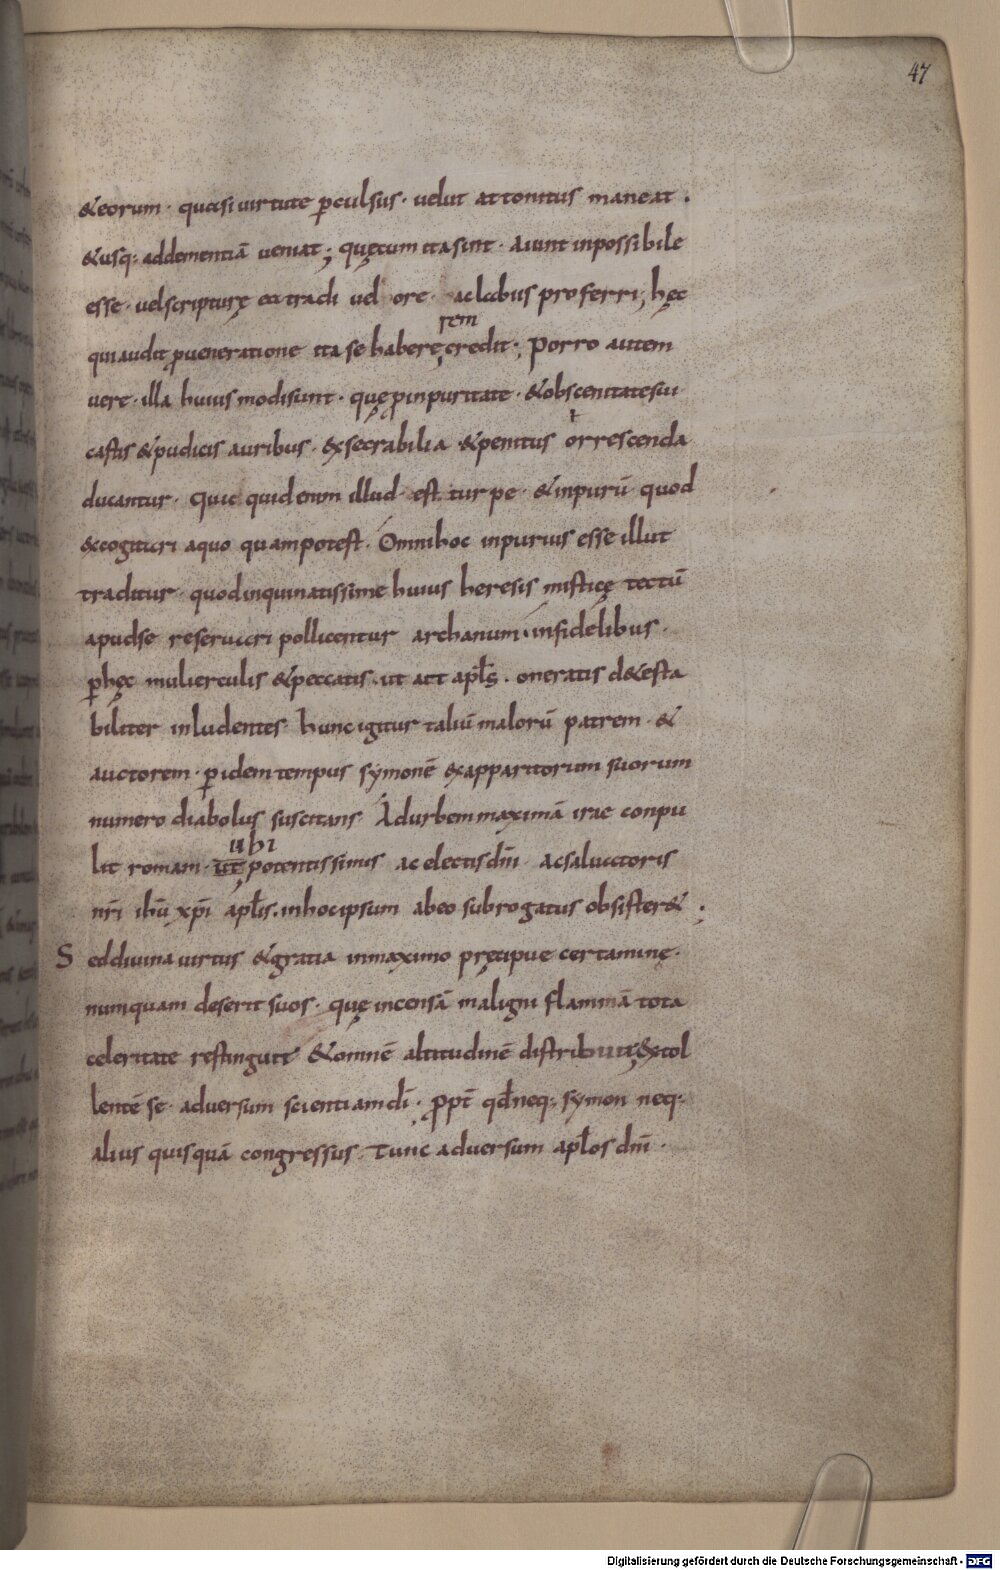 47
&eorum · quasi uirtute ꝑculsus · uelut attonitus maneat .
&usq: addementiā ueniat ; quęcum ita sint · Aiunt inpossibile
esse · uel scripturę ea tradi uel ore · ac labiis proferri ; hęc
rem
qui audit ꝓ ueneratione ita se habere credit ; Porro autem
uere · illa huius modi sunt · quę ꝓ inpuritate · & obscenitate sui
castis & pudicis auribus · exsecrabilia · & penitus orrescenda
ducantur · Quic quid enim illud · est turpe · & inpurū quod
excogitari a quo quam potest . Omni hoc inpurius esse illut
traditur · quod inquinatissime huius heresis misticę tectū
apud se reseruari pollicentur archanum . infidelibus ·
ꝑ hęc mulierculis & peccatis . ut ait apłs . oneratis d&esta
biliter inludentes · hunc igitur taliū malorū patrem · &
auctorem · ꝑ idem tempus symonē ex apparitorum suorum
numero diabolus suscitans · Ad urbem maximā irae conpu
ubi
lit romam · ut potentissimis ac electis dn̄i · ac saluatoris
nr̄i ihū xp̄i apłis . in hoc ipsum ab eo subrogatus obsister& ;
Sed diuina uirtus & gratia in maximo pręcipue certamine ·
numquam deserit suos · quę incensā maligni flammā tota
celeritate restinguit & omnē altitudinē distribuit & extol
lentē se · aduersum scientiam dī · ꝓpt̄ qđ neq; symon neq:
alius quisquā congressus . Tunc aduersum apłos dn̄i ·
Digitalisierung gefördert durch die Deutsche Forschungsgemeinschaft - DFG